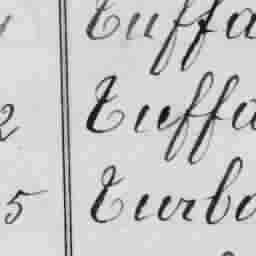 Tuffa
2 Tuffa
5 Turbo